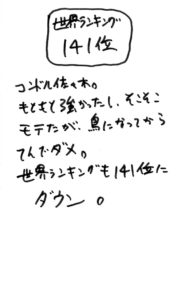 世界ランキング
141位
コンドル佐々木。
もともと強かったし、そこそこ
モテたが、鳥になってから
てんでダメ。
世界ランキングも141位に
ダウン。